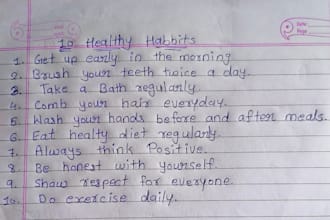 10 Healthy Habbits
1. Get up early in the morning
2. Brush your teeth twice a day.
3. Take a Bath regularly.
4. Comb your hair everyday.
5. Wash your hands before and after meals.
6. Eat healty diet regularly.
7. Always think Positive.
8. Be honest with yourself.
9. Show respect for everyone.
10. Do exercise daily.